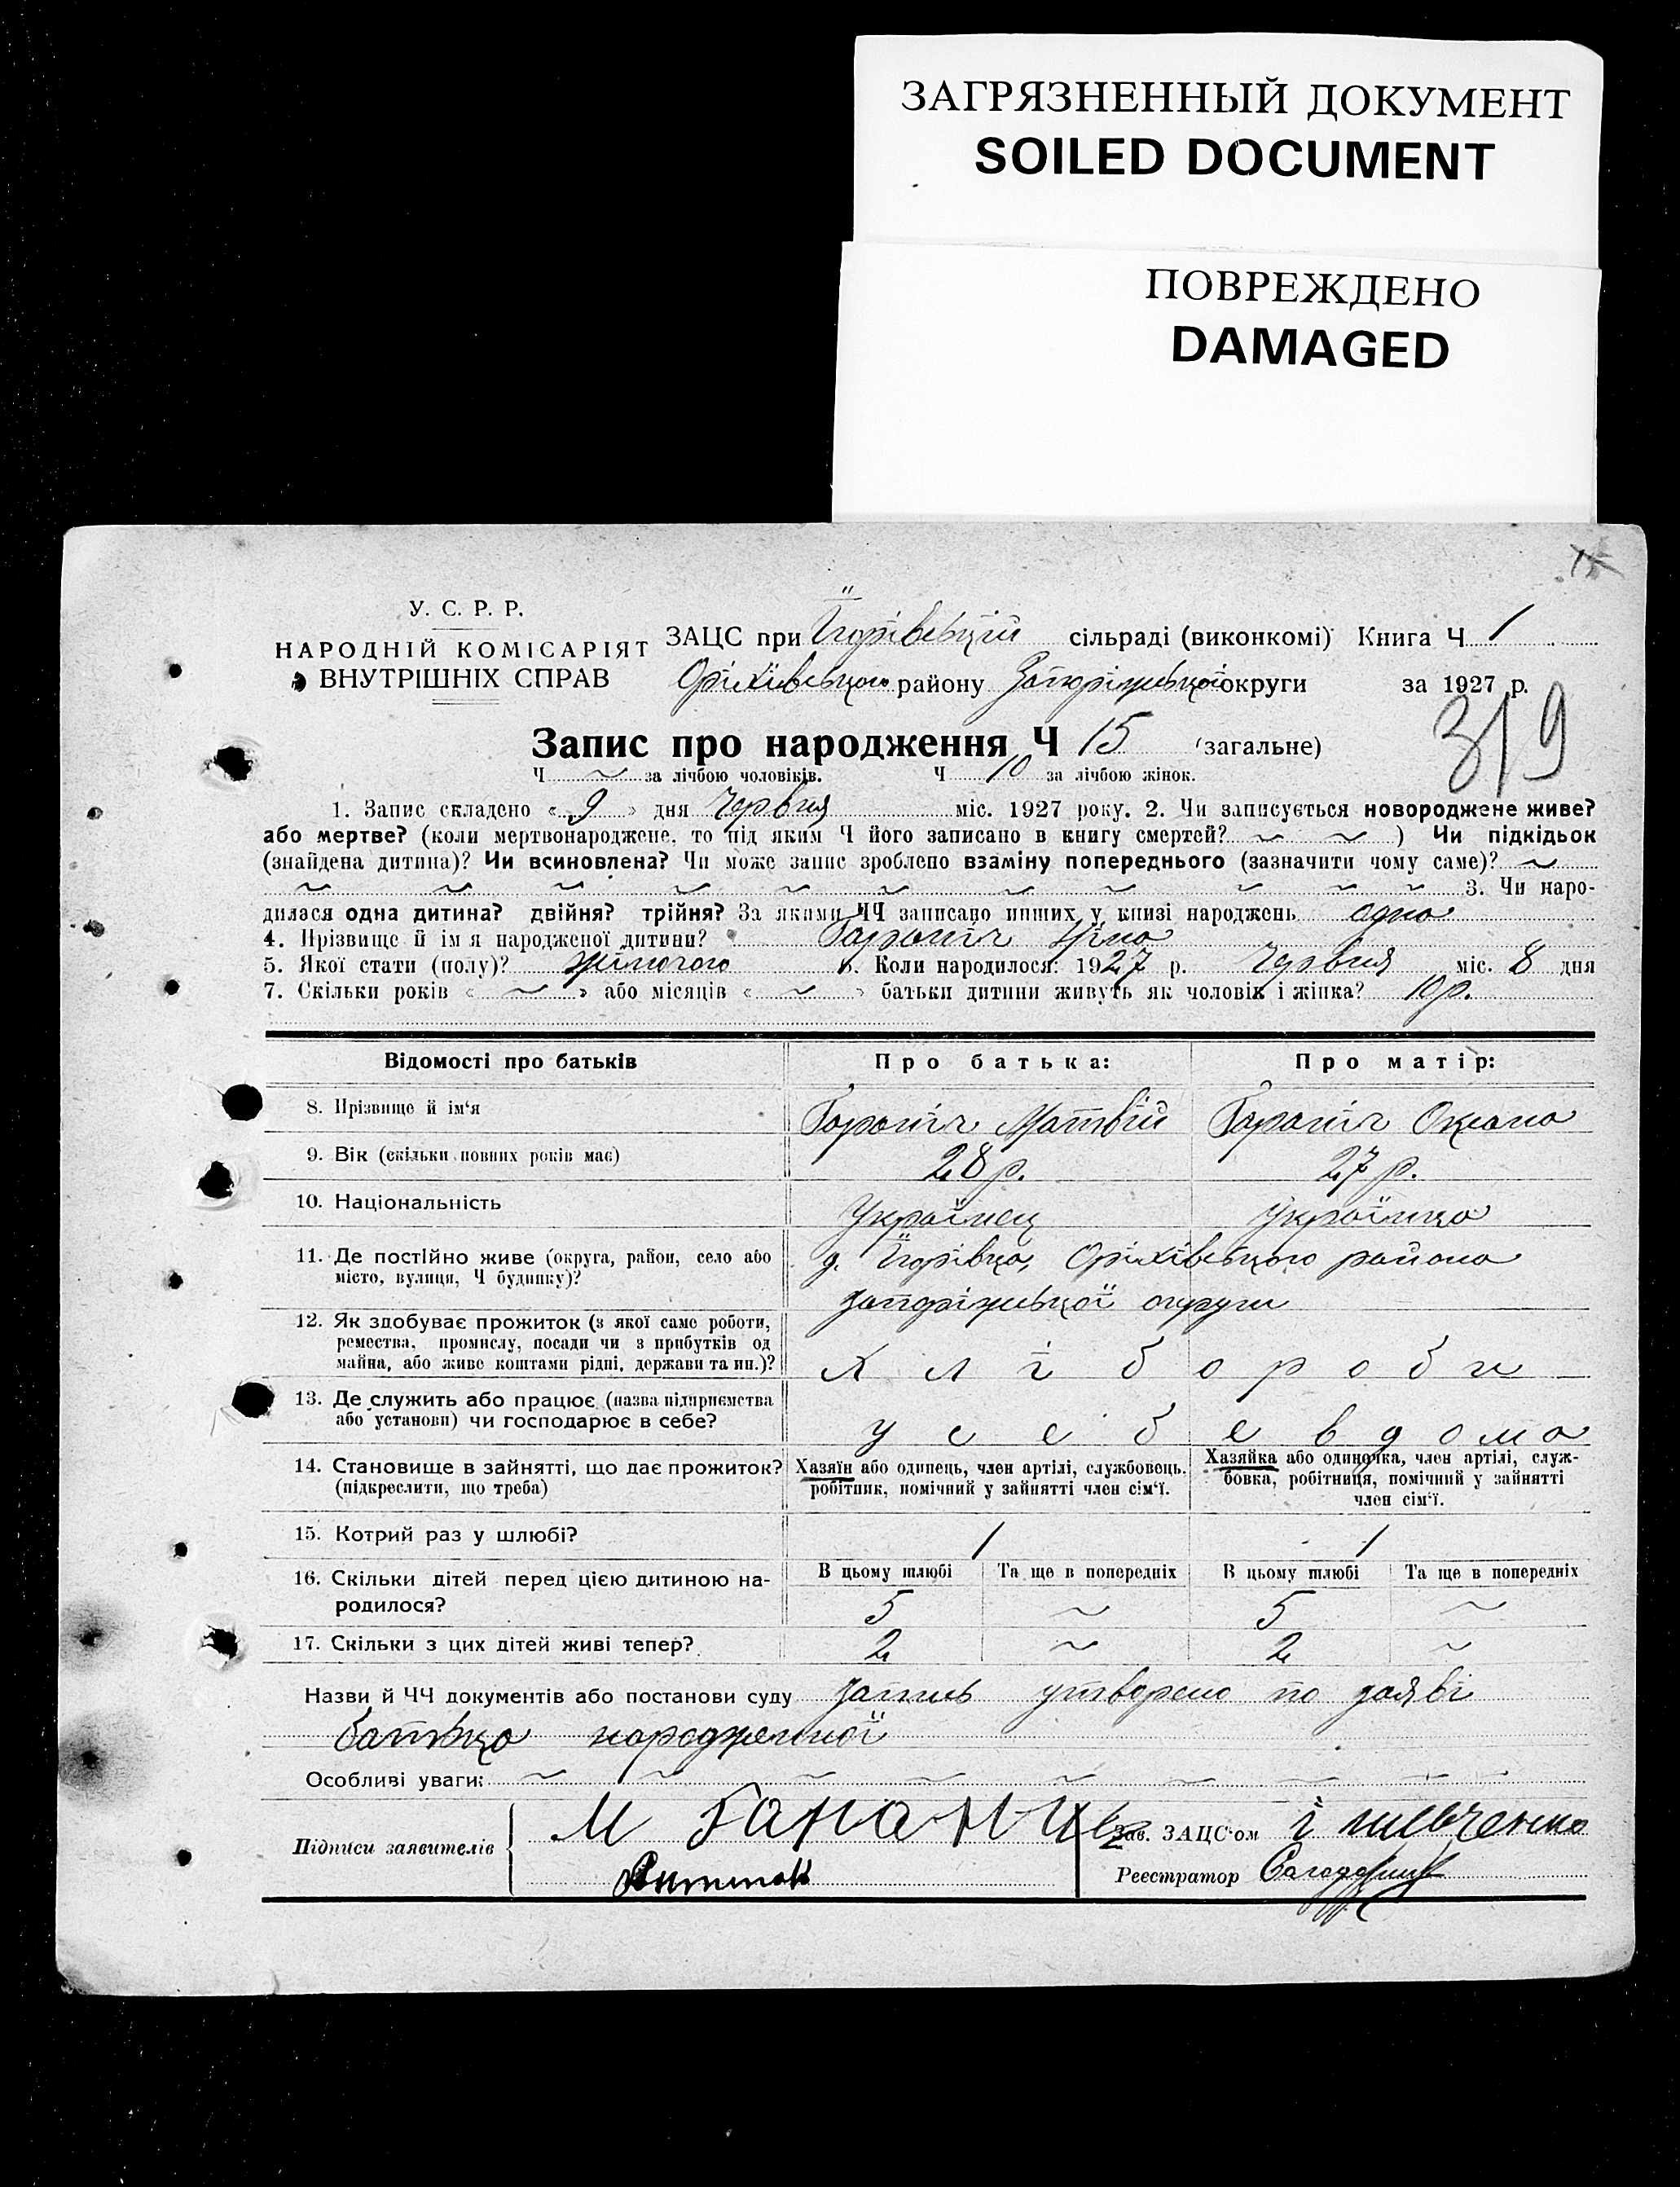 ЗАГРЯЗНЕННЫЙ ДОКУМЕНТ
SOILED DOCUMENT
ПОВРЕЖДЕНО
DAMAGED
У. С. Р. Р.
НАРОДНІЙ КОМІСАРІЯТ
ВНУТРІШНІХ СПРАВ
ЗАЦС при сільраді (виконкомі) Книга Ч 1
Оріхівського району Запоріжської округи за 1927 р.
319
Запис про народження Ч 15 (загальне)
Ч ~ за лічбою чоловіків. Ч 10 за лічбою жінок.
1. Запис складено « 9 » дня червня міс. 1927 року. 2. Чи записується новороджене живе?
або мертве? (коли мертвонароджене, то під яким Ч його записано в книгу смертей? ~ ~ ) Чи підкідьок
(знайдена дитина)? Чи всиновлена? Чи може запис зроблено взаміну попереднього (зазначити чому саме)? ~
~ ~ ~ ~ ~ ~ ~ ~ ~ ~ ~ 3. Чи наро-
дилася одна дитина? двійня? трійня? За якими ЧЧ записано инших у книзі народжень одна
4. Прізвище й ім я народженої дитини? Гаранич Ніна
5. Якої стати (полу)? жіночого 6. Коли народилося: 1927 р. червня міс. 8 дня
7. Скільки років « ~ » або місяців « ~ » батьки дитини живуть як чоловік і жінка? 10 р.
Відомості про батьків Про батька: Про матір:
8. Прізвище й ім‘я Гараніч Матвій Гараніч Оксана
9. Вік (скільки повних років має) 28 р. 27 р.
10. Національність Українец українка
11. Де постійно живе (округа, район, село або
місто, вулиця, Ч будинку)?
Оріхівського района
запоріжської округи
12. Як здобуває прожиток (з якої саме роботи,
ремества, промислу, посади чи з прибутків од
майна, або живе коштами рідні, держави та ин.)?
хлібороби
13. Де служить або працює (назва підприємства
або установи) чи господарює в себе?
у себе вдома
14. Становище в зайнятті, що дає прожиток?
(підкреслити, що треба)
Хазяїн або одинець, член артілі, службовець.
робітник, помічний у зайнятті член сім‘ї.
Хазяйка або одиночка, член артілі, служ-
бовка, робітниця, помічний у зайнятті
член сім‘ї.
15. Котрий раз у шлюбі? 1 1
16. Скільки дітей перед цією дитиною на-
родилося?
В цьому шлюбі Та ще в попередніх В цьому шлюбі Та ще в попередніх
5 ~ 5 ~
17. Скільки з цих дітей живі тепер? 2 ~ 2 ~
Назви й ЧЧ документів або постанови суду запись утворено по заяві
батька народженної
Особливі уваги: ~ ~ ~ ~ ~ ~ ~ ~
Підписи заявителів М
Зав. ЗАЦС‘ом
Реестратор